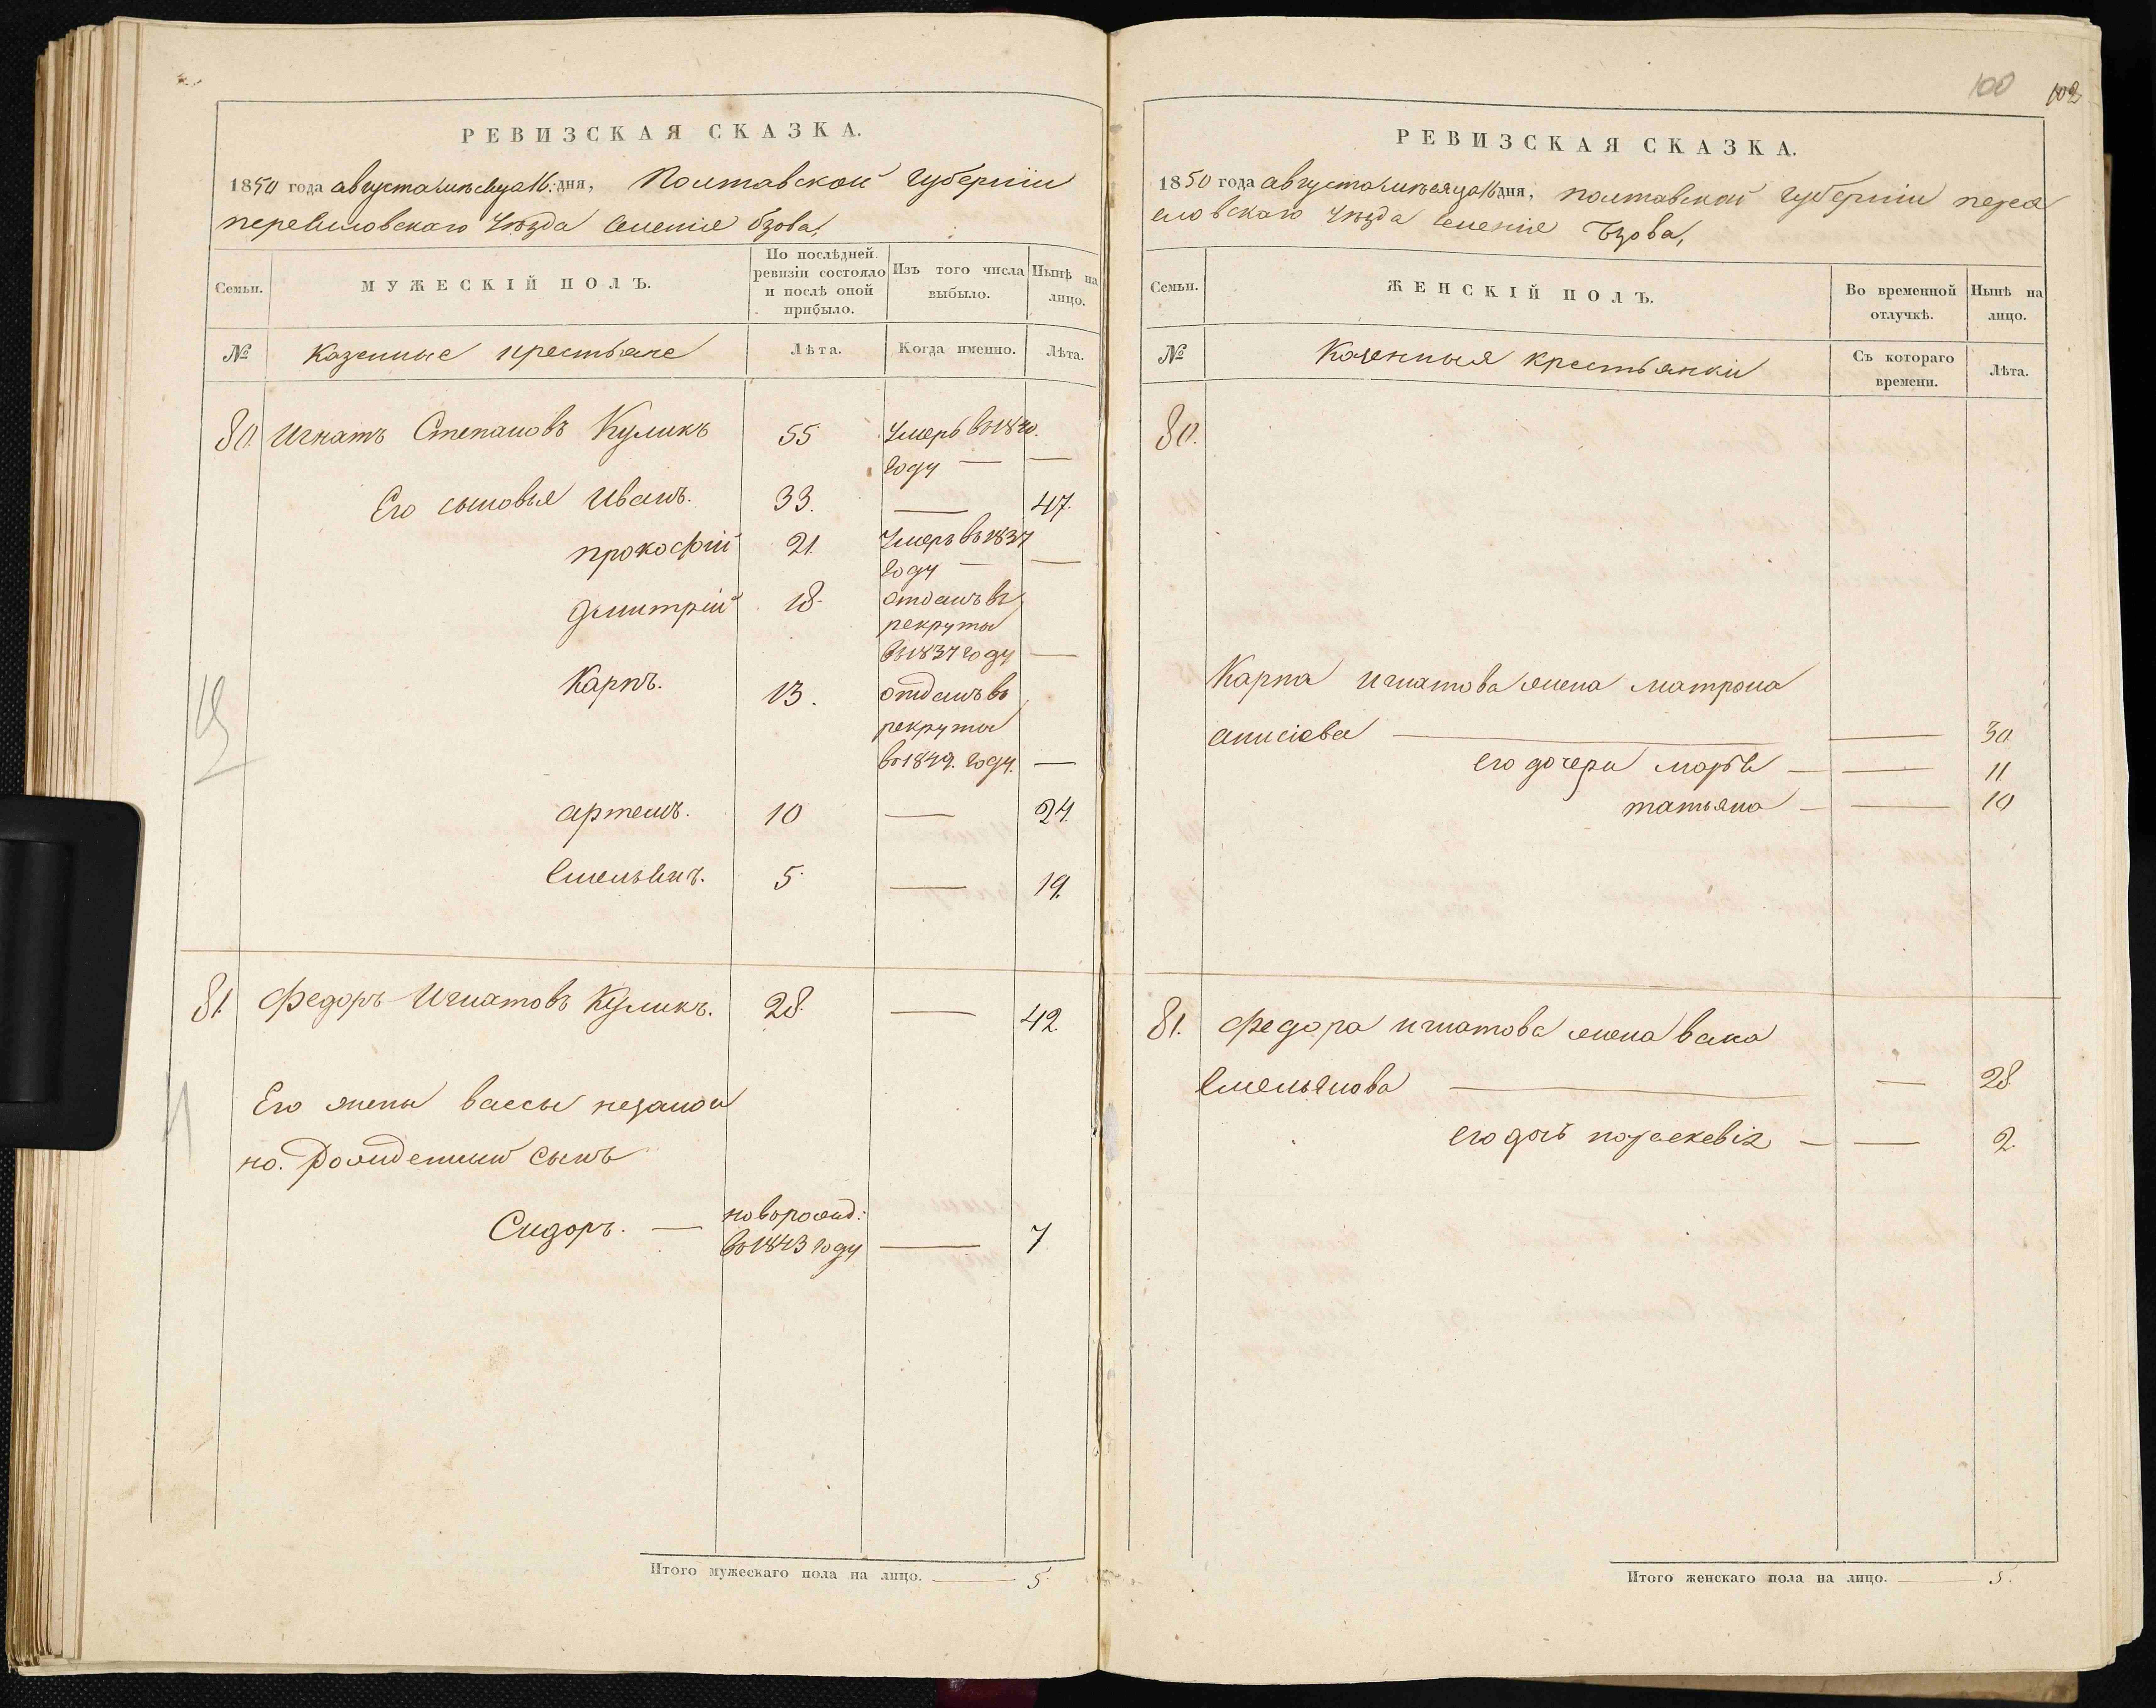 РЕВИЗСКАЯ СКАЗКА.
1850 года августа месяца 16. дня, Полтавской губерніи
переясловскаго уѣзда селеніе бзова,
Семьи.
МУЖЕСКІЙ ПОЛЪ.
По послѣдней ревизіи состояло и послѣ оной прибыло.
Изъ того числа выбыло.
Нынѣ на лицо.
№
Казенные крестьяне
Лѣта.
Когда именно.
Лѣта.
80. Игнатъ Степановъ Куликъ 55 Умеръ въ 1840.
году — —
Его сыновья Иванъ. 33. — 47.
прокофій 21. Умеръ въ 1837
году — —
дмитрій 18. отданъ въ
рекруты
въ 1837 году —
Карпъ. 13. отданъ въ
рекруты
въ 1849. году. —
артемъ. 10 — 24.
Емельянъ. 5. — 19.
81. Федоръ Игнатовъ Куликъ. 28. — 42.
Его жены вассы незакон
но. рожденный сынъ
Сидоръ. — новорожд:
въ 1843 году — 7
Итого мужескаго пола на лицо. — 5.
100 102
РЕВИЗСКАЯ СКАЗКА.
1850 года августа месяца 16 дня, полтавской губерніи перея
словскаго уѣзда селеніе Бзова,
Семьи.
ЖЕНСКІЙ ПОЛЪ.
Во временной отлучкѣ.
Нынѣ на лицо.
№
Казенныя крестьянки
Съ котораго времени.
Лѣта.
80.
Карпа игнатова жена матрона
анисіева — — 30.
его дочери марѳа — — 11.
татьяна — — 10
81. федора игнатова жена васа
Емельянова — — 28
его дочь параскевія — — 2.
Итого женскаго пола на лицо. — 5.